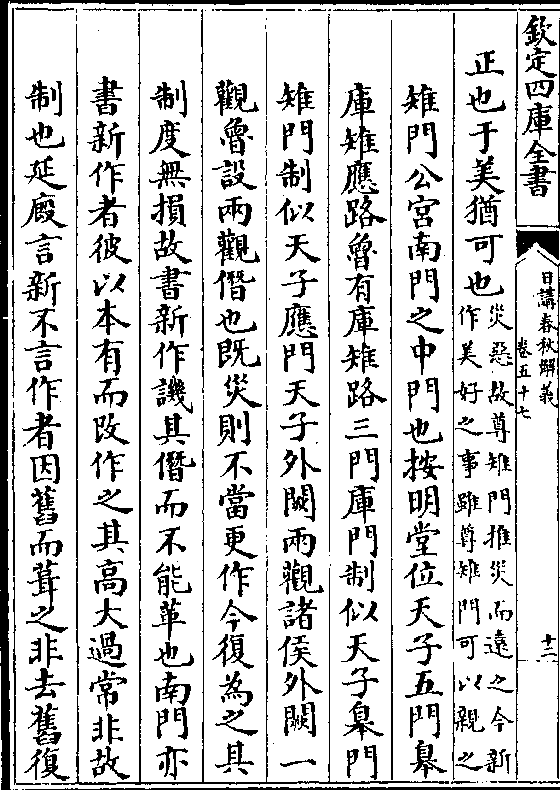 欽定四庫全書
日講春秋解義
卷五十七
十二
正也于美猶可也災惡故尊雉門推災而遠之今新
作美好之事雖尊雉門可以親之
雉門公宮南門之中門也按明堂位天子五門皋
庫雉應路魯有庫雉路三門庫門制似天子皋門
雉門制似天子應門天子外闕兩觀諸侯外闕一
觀魯設兩觀僭也既災則不當更作今復為之其
制度無損故書新作譏其僭而不能革也南門亦
書新作者彼以本有而改作之其高大過常非故
制也延廐言新不言作者因舊而葺之非去舊復